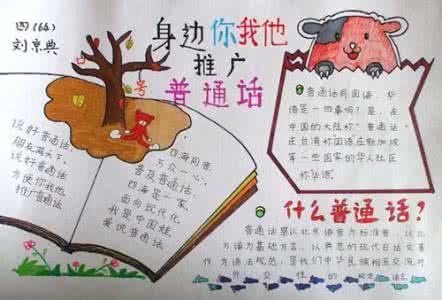 四(64)
刘京典
身边你我他
推广
普通话
说好普通话
朋友遍天下
说好普通话
方便你我他
推广普通话
四海同音
万众一心
普及普通话
四海是一家
面向现代化
我是中国娃
爱说普通话
普通话和国语、华
语是一回事吗？是，在
中国的大陆称“普通话”
在台湾称国语在新加坡
等一些国家的华人社区
称华语。
什么普通话？
普通话是以北京语音为标准音，以北
方话为基础方言，以典范的现代白话文著
作为语法规范，是我们中华民族相互交流对
外交往的